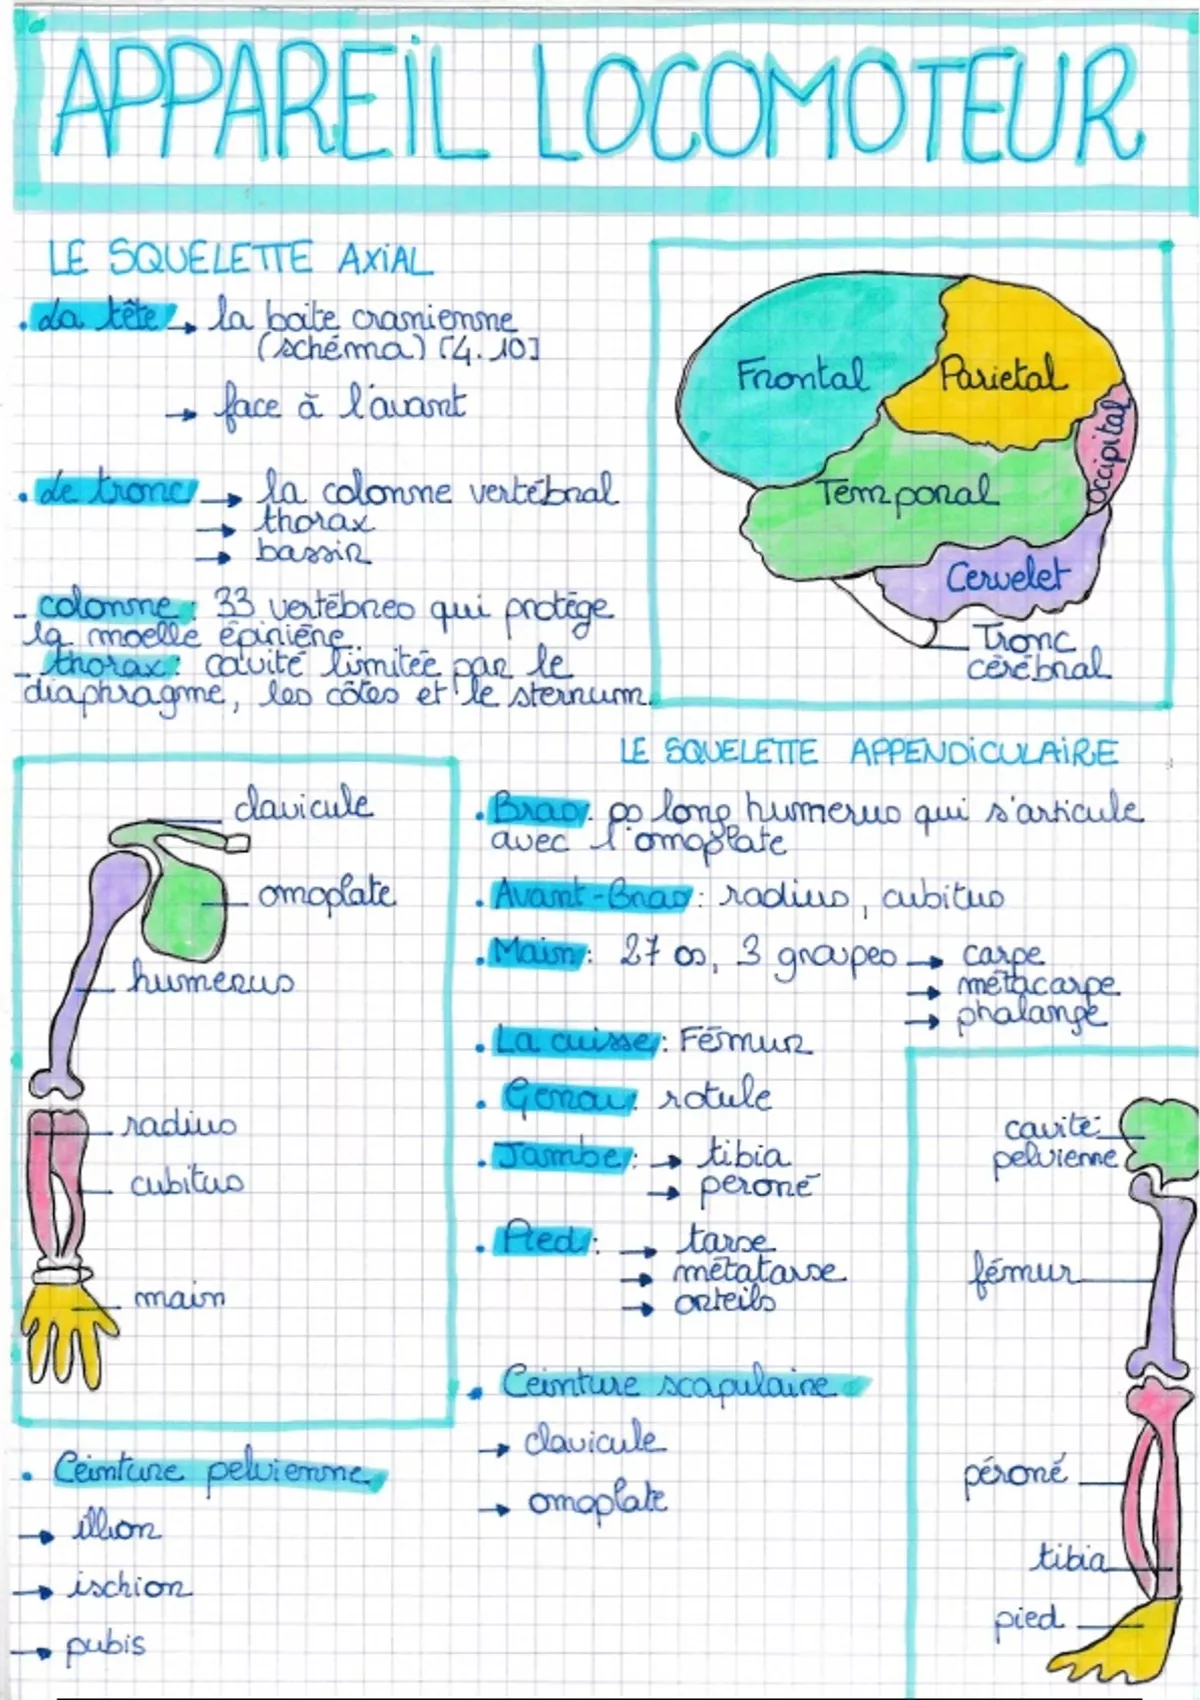 APPAREIL LOCOMOTEUR
LE SQUELETTE AXIAL
• La tête → la boite cranienne
(schéma) [4.10]
→ face à l'avant
• Le tronc → la colonne vertébral
→ thorax
→ bassin
- colonne : 33 vertèbres qui protège
la moelle épinière
- thorax : cavité limitée par le
diaphragme, les côtes et le sternum.
Frontal
Parietal
Occipital
Temporal
Cervelet
Tronc
cérébral
LE SQUELETTE APPENDICULAIRE
• Bras : os long humerus qui s'articule
avec l'omoplate
• Avant-Bras : radius, cubitus
• Main : 27 os, 3 groupes → carpe
→ métacarpe
→ phalange
• La cuisse : Fémur
• Genou : rotule
• Jambe : → tibia
→ peroné
• Pied : → tarse
→ métatarse
→ orteils
• Ceinture scapulaire
→ clavicule
→ omoplate
clavicule
omoplate
humerus
radius
cubitus
main
• Ceinture pelvienne
→ illion
→ ischion
→ pubis
cavité
pelvienne
fémur
péroné
tibia
pied